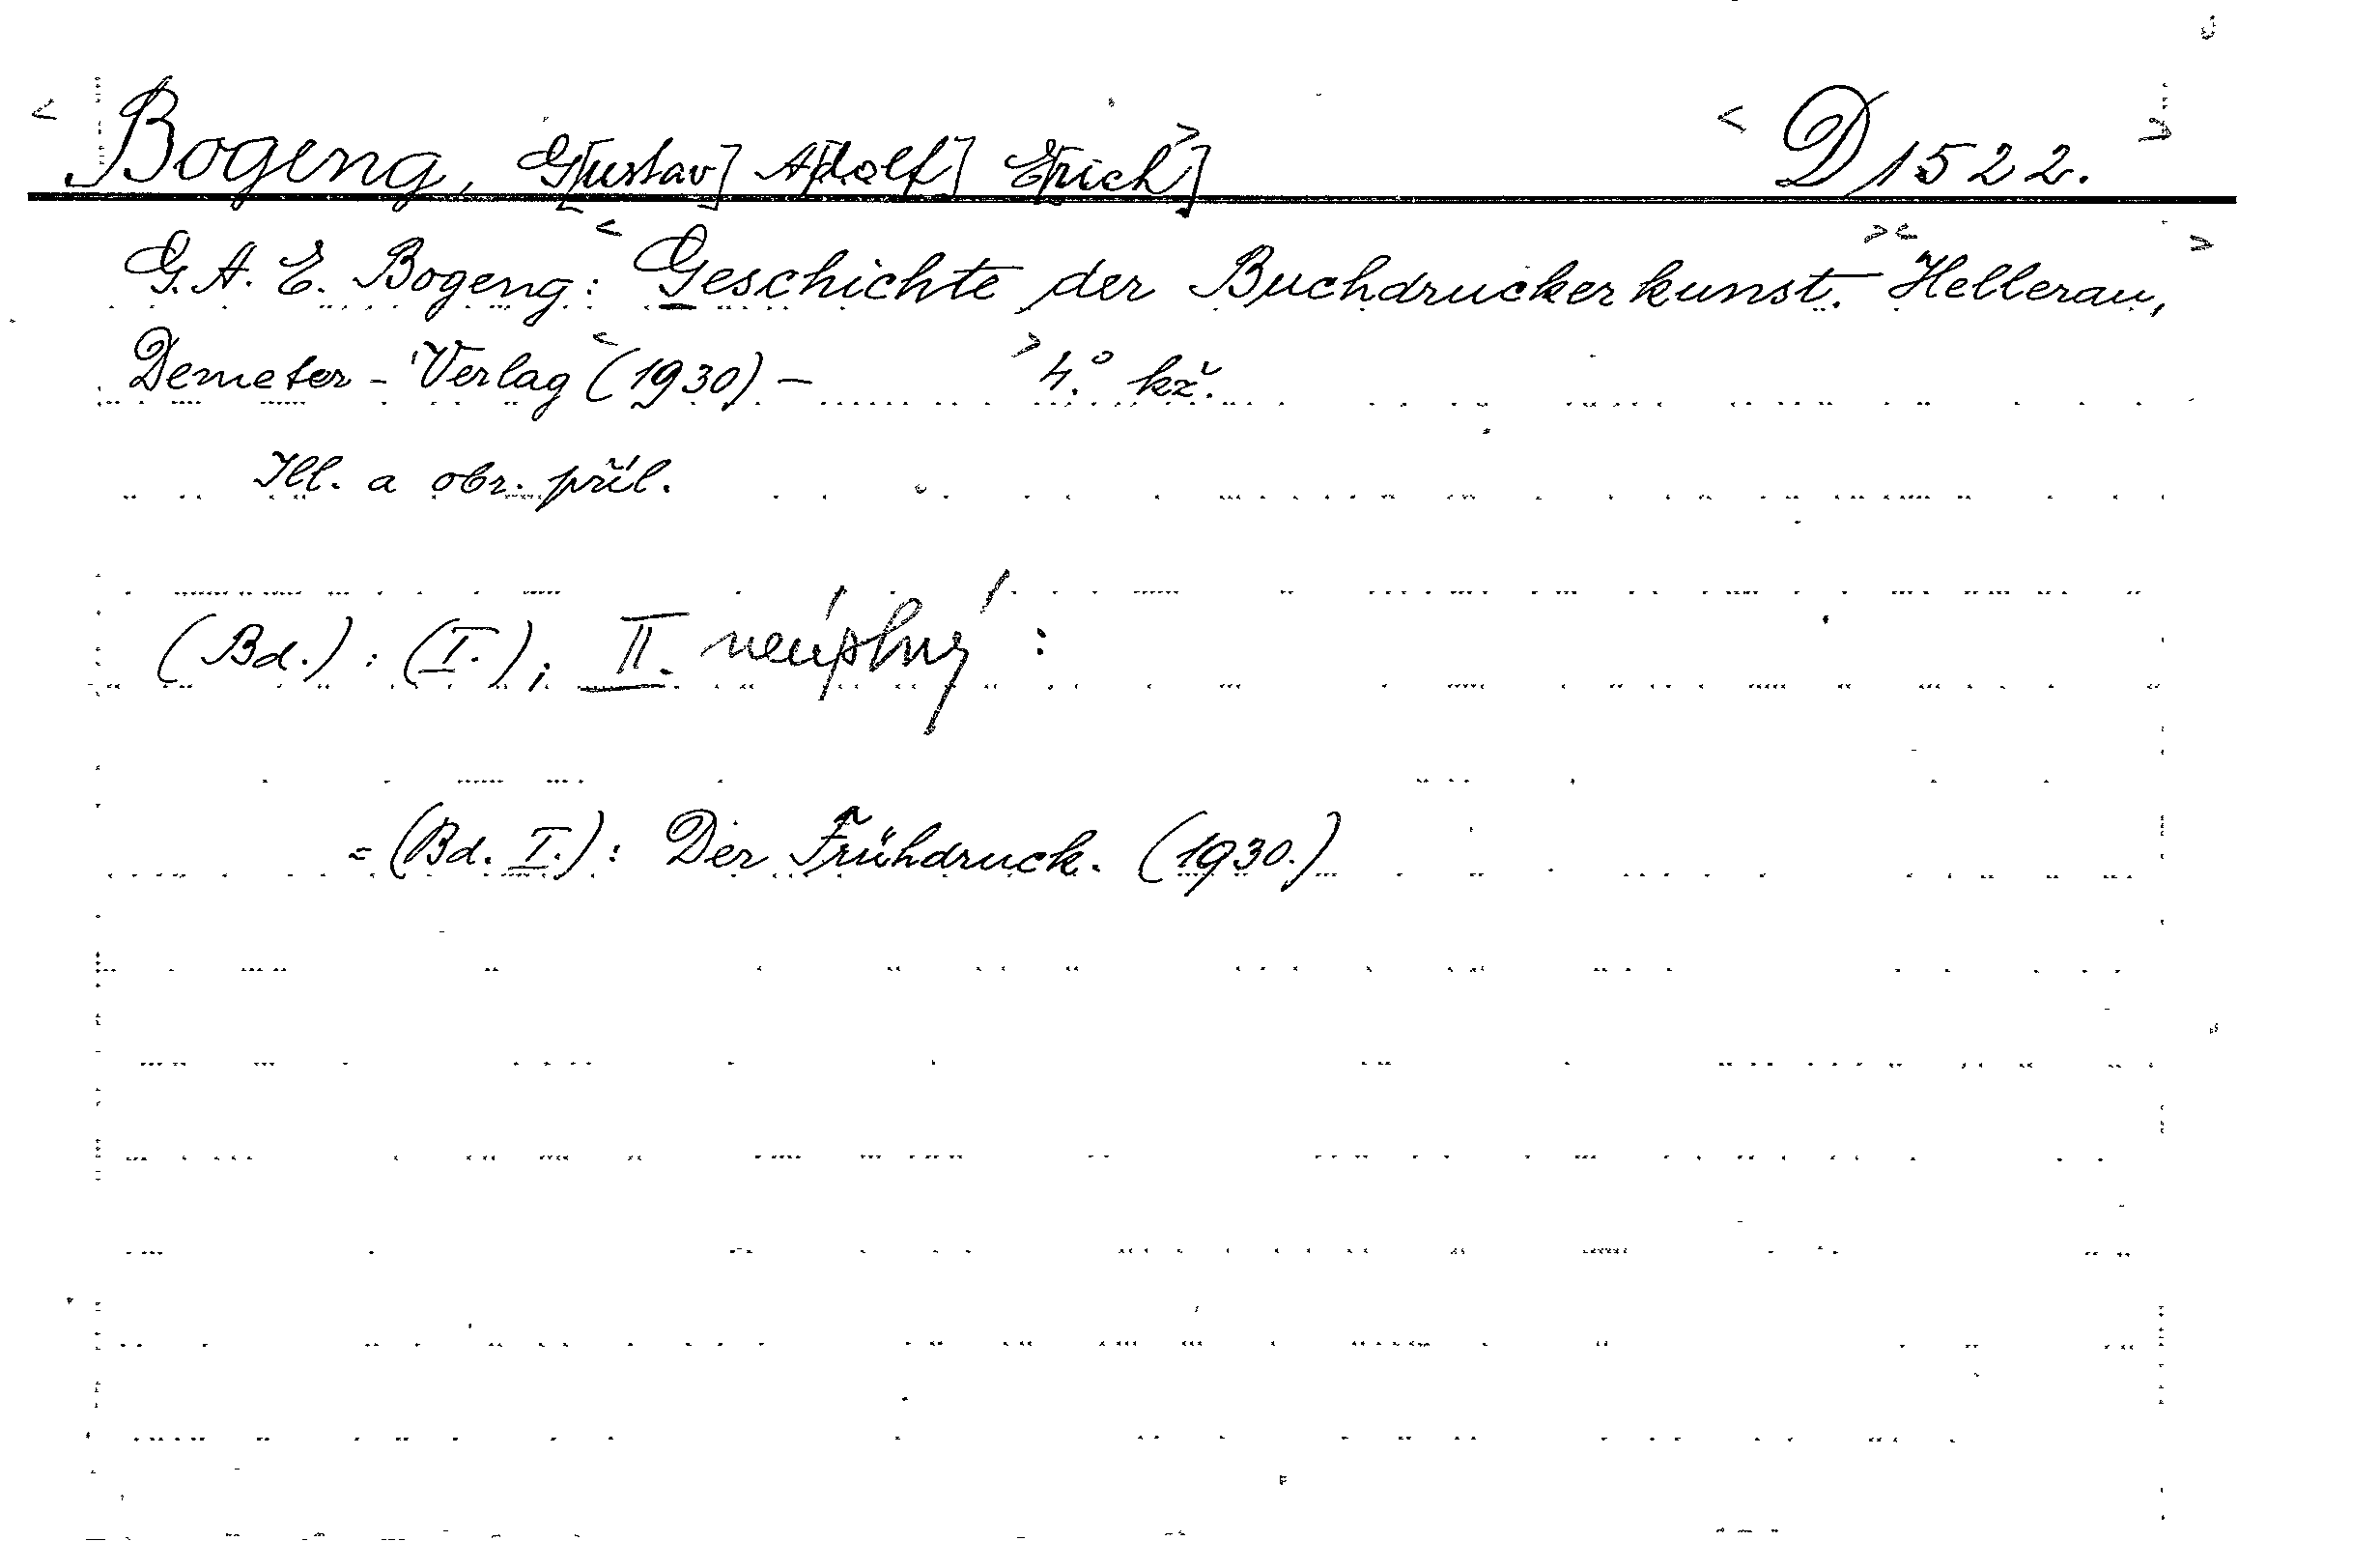 < Bogeng, G[ustav] A[dolf] E[rich] > < D 1522. >
G. A. E. Bogeng: < Geschichte der Buchdruckerkunst. > < Hellerau, >
Demeter-Verlag < (1930) – > 4.° kž.
Ill. a obr. příl.
(Bd.): (I.), II. neúplný:
= (Bd. I.): Der Frühdruck. (1930.)